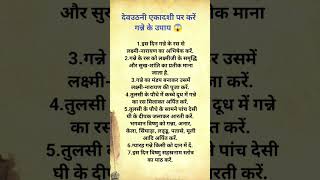 देवउठनी एकादशी पर करें
गन्ने के उपाय 😱
1.इस दिन गन्ने के रस से
लक्ष्मी-नारायण का अभिषेक करें.
2.गन्ने के रस को लक्ष्मीजी के समृद्धि
और सुख-शांति का प्रतीक माना
जाता है.
3.गन्ने का मंडप बनाकर उसमें
लक्ष्मी-नारायण की पूजा करें.
4.तुलसी के पौधे में कच्चे दूध में गन्ने
का रस मिलाकर अर्पित करें.
5.तुलसी के पौधे के सामने पांच देसी
घी के दीपक जलाकर आरती करें.
भगवान विष्णु को गन्ना, अनार,
केला, सिंघाड़ा, लड्डू, पतासे, मूली
आदि अर्पित करें.
6.ग्यारह गन्ने किसी को दान में दें.
7.इस दिन विष्णु सहस्रनाम स्तोत्र
का पाठ करें.